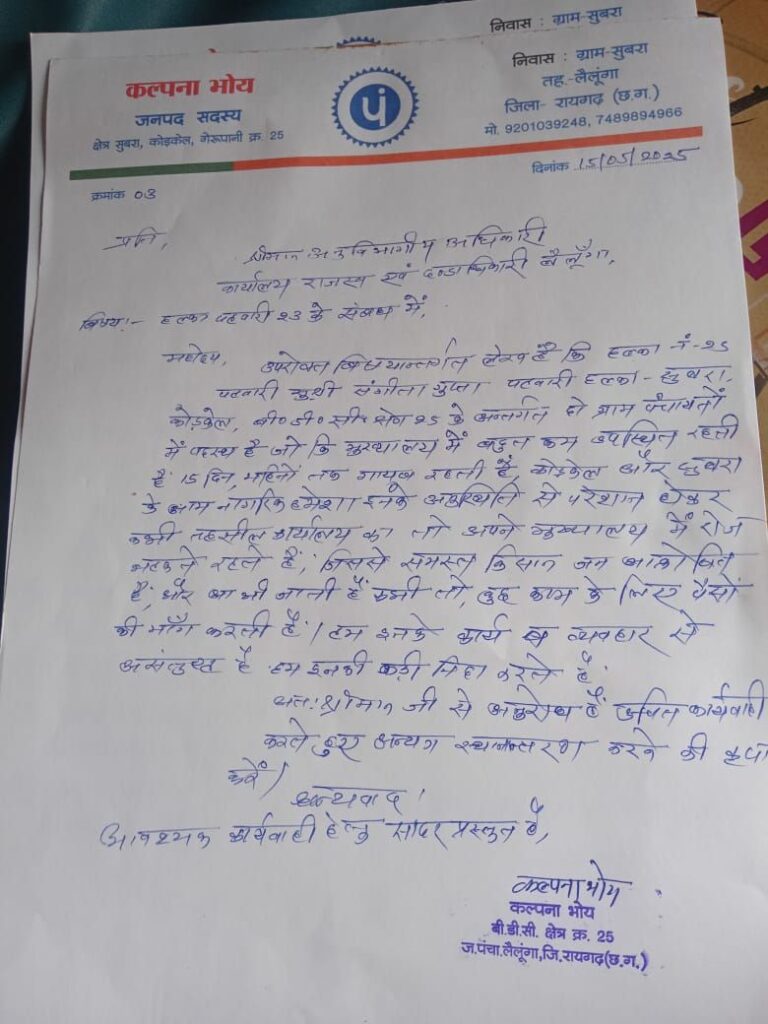 निवास : ग्राम-सुबरा
कल्पना भोय
जनपद सदस्य
क्षेत्र सुबरा, कोड़केल, गेरूपानी क्र. 25
पं
निवास : ग्राम-सुबरा
तह.-लैलूंगा
जिला- रायगढ़ (छ.ग.)
मो. 9201039248, 7489894966
क्रमांक 03
दिनांक 15/05/2025
प्रति,
श्रीमान अनुविभागीय अधिकारी
कार्यालय राजस्व एवं दण्डाधिकारी लैलूँगा,
विषय:- हल्का पटवारी 23 के संबंध में,
महोदय, उपरोक्त विषयान्तर्गत लेख है कि हल्का नं-25
पटवारी सुश्री संगीता गुप्ता पटवारी हल्का - सुबरा,
कोड़केल, बी० डी० सी० क्षेत्र 25 के अन्तर्गत दो ग्राम पंचायतों
में पदस्थ है जो कि मुख्यालय में बहुत कम उपस्थित रहती
है 15 दिन, महिनों तक गायब रहती है कोड़केल और सुबरा
के आम नागरिक हमेशा इनके अनुपस्थिति से परेशान होकर
कभी तहसील कार्यालय का तो अपने मुख्यालय में रोज
भटकते रहते हैं, जिससे समस्त किसान जन आक्रोषित
है, और आ भी जाती हैं कभी तो, कुछ काम के लिए पैसों
की माँग करती हैं। हम इनके कार्य व व्यवहार से
असंतुष्ट है हम इनकी कड़ी निंदा करते हैं
अत: श्रीमान जी से अनुरोध है उचित कार्यवाही
करते हुए अन्यत्र स्थानान्तरण करने की कृपा
करें।
धन्यवाद।
आवश्यक कार्यवाही हेतु सादर प्रस्तुत है,
कल्पना भोय
कल्पना भोय
बी.डी.सी. क्षेत्र क्र. 25
ज.पंचा.लैलूंगा,जि.रायगढ़(छ.ग.)